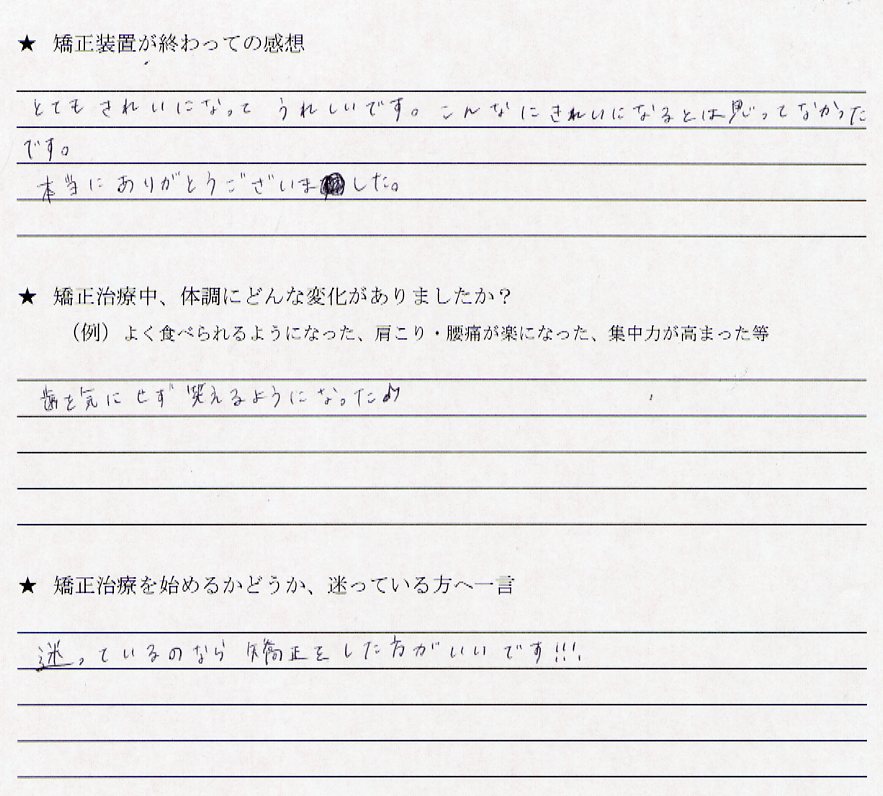 ★ 矯正装置が終わっての感想
とてもきれいになって うれしいです。こんなにきれいになるとは思ってなかった
です。
本当にありがとうございました。
★ 矯正治療中、体調にどんな変化がありましたか？
（例）よく食べられるようになった、肩こり・腰痛が楽になった、集中力が高まった等
歯を気にせず笑えるようになった♪
★ 矯正治療を始めるかどうか、迷っている方へ一言
迷っているのなら矯正をした方がいいです!!!